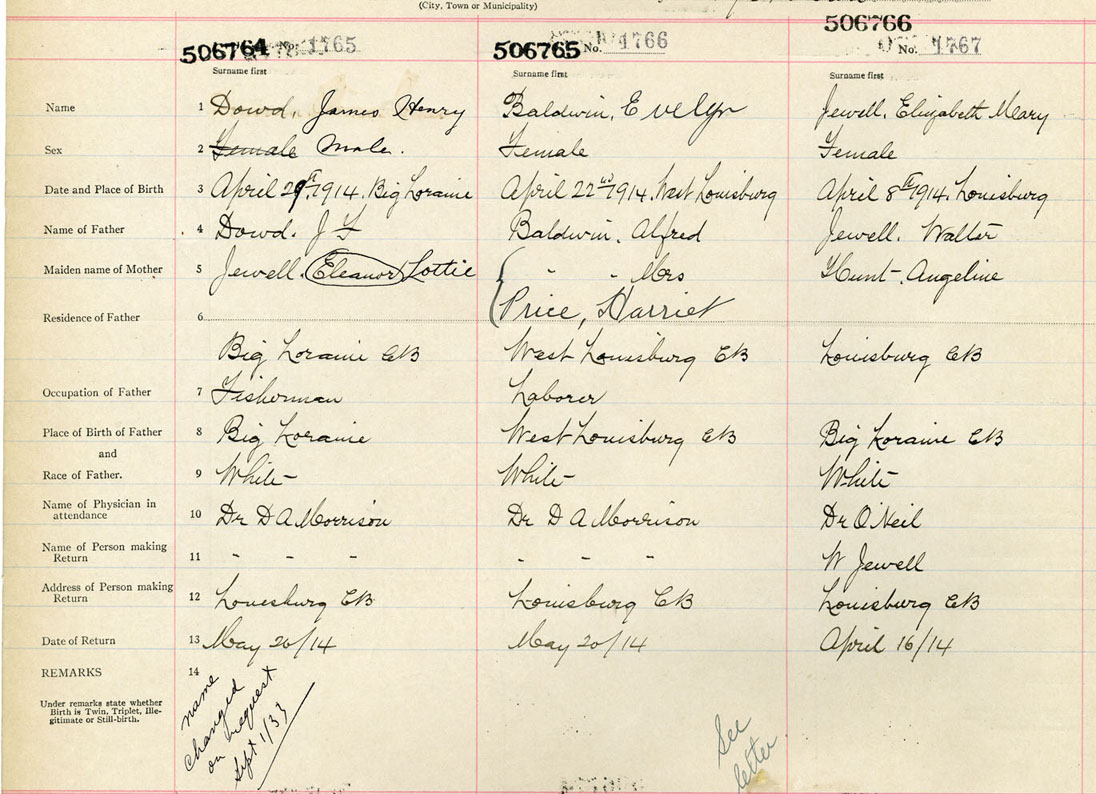 (City, Town or Municipality)
506764 No. 1765 506765 No. 1766 506766 No. 1767
Surname first Surname first Surname first
Name 1 Dowd, James Henry Baldwin, Evelyn Jewell, Elizabeth Mary
Sex 2 Female Male. Female Female
Date and Place of Birth 3 April 29th 1914. Big Loraine April 22nd 1914. West Louisburg April 8th 1914. Louisburg
Name of Father 4 Dowd. J F Baldwin. Alfred Jewell. Walter
Maiden name of Mother 5 Jewell. Eleanor Lottie " " Mrs Hunt- Angeline
Price, Harriet
Residence of Father 6
Big Loraine CB West Louisburg CB Louisburg CB
Occupation of Father 7 Fisherman Laborer
Place of Birth of Father 8 Big Loraine West Louisburg CB Big Loraine CB
and
Race of Father. 9 White White White
Name of Physician in
attendance 10 Dr D A Morrison Dr D A Morrison Dr O'Neil
Name of Person making
Return 11 " " " " " " W Jewell
Address of Person making
Return 12 Louisburg CB Louisburg CB Louisburg CB
Date of Return 13 May 20/14 May 20/14 April 16/14
REMARKS 14
Under remarks state whether
Birth is Twin, Triplet, Ille-
gitimate or Still-birth.
name
changed
on request
Sept 1/33
See
letter